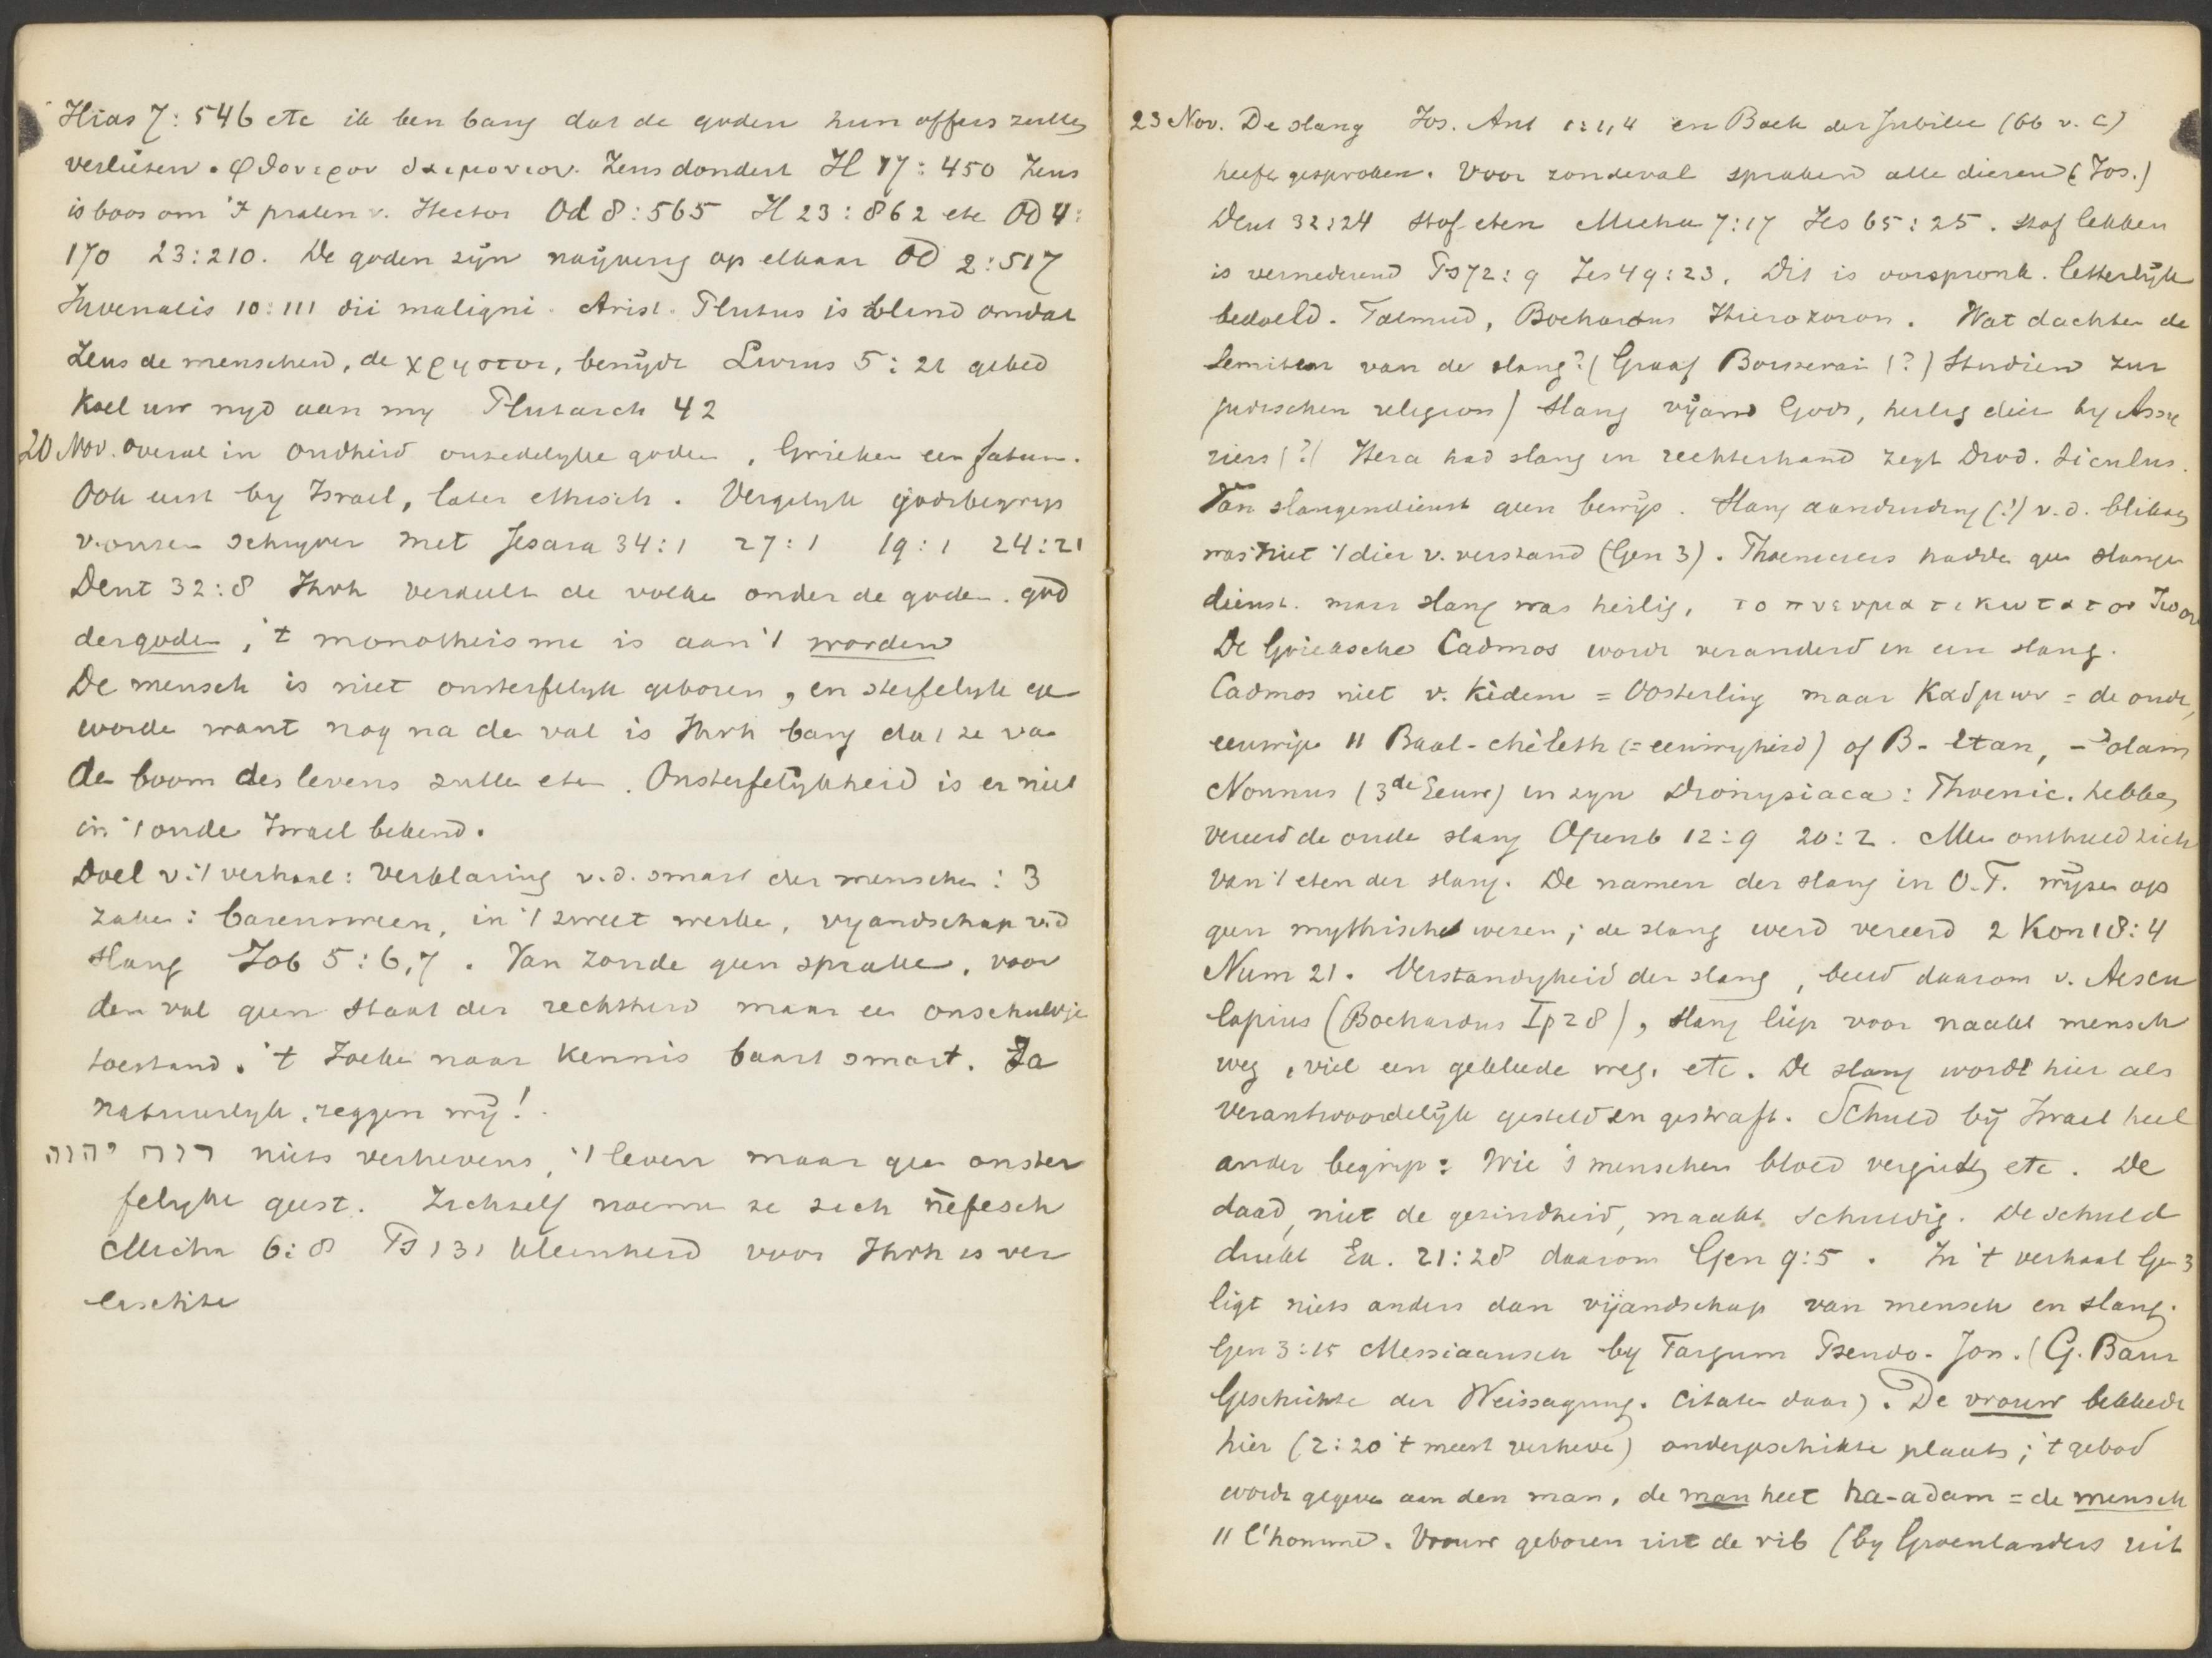 Ilias 7:546 etc ik ben bang dat de goden hun offers zullen
verliezen. φθονερον δαιμονιον. Zeus dondert Il 17:450 Zeus
is boos om 't pralen v. Hector Od 8:565 Il 23:862 etc Od 4:
170 23:210. De goden zijn naijverig op elkaar Od 2:517
Juvenalis 10:111 dii maligni. Arist. Plutus is blind omdat
Zeus de menschen, de χρηστοι, benijdt Livius 5:21 gebed
Koel uw nijd aan mij Plutarch 42
20 Nov. overal in oudheid onzedelijke goden, Grieken een fatum.
Ook eerst by Israel, later ethisch. Vergelijk godsbegrip
v. onzen schrijver met Jesaia 34:1 27:1 19:1 24:21
Deut 32:8 Jhvh verdeelt de volken onder de goden. god
der goden, 't monotheisme is aan 't worden
De mensch is niet onsterfelyk geboren, en sterfelyk ge
worde want nog na de val is Jhvh bang dat ze van
de boom des levens zulle eten. Onsterfelijkheid is er niet
in 't oude Israel bekend.
Doel v. 't verhaal: verklaring v.d. smart der menschen: 3
zaken: barensween, in 't zweet werke, vyandschap v.d
slang Job 5:6,7. Van zonde geen sprake, voor
den val geen staat der rechtheid maar een onschuldige
toestand. 't Zoeken naar kennis baart smart. Ja
natuurlyk, zeggen wij!
רוח יהוה niets verhevens, 't leven maar geen onster
felyke geest. Zichzelf noemen ze zich nèfesch
Micha 6:8 Ps 131 kleinheid voor Jhvh is ver
eischte
23 Nov. De slang Jos. Ant 1:1,4 en Boek der Jubilee (66 v. C)
heeft gesproken. Voor zondeval spraken alle dieren (Jos.)
Deut 32:24 stof eten Micha 7:17 Jes 65:25. stof lekken
is vernederend Ps 72:9 Jes 49:23. Dit is oorspronk. letterlijk
bedoeld. Talmud, Bochardus Hierozoron. Wat dachten de
Semiten van de slang? (Graaf (?) Studien zur
judischen religion) Slang vijand Gods, heilig dier by Assy
riers (?) Hera had slang in rechterhand zegt Diod. Siculus.
Van slangendienst geen bewijs. Slang aanduiding (?) v.d. bliksem
was niet 't dier v. verstand (Gen 3). Phoeniciers hadden geen slangen
dienst. maar slang was heilig,
De Grieksche Cadmos wordt veranderd in een slang.
Cadmos niet v. Kèdem = Oosterling maar Καδμων = de oude,
eeuwige " Baal-chèleth (= eeuwigheid) of B- Etan, -ʾolam
Nonnus (3de Eeuw) in zyn Dionysiaca: Phoenic. hebben
vereerd de oude slang Openb 12:9 20:2. Men onthield zich
van 't eten der slang. De namen der slang in O.T. wijzen op
geen mythische wezen; de slang werd vereerd 2 Kon 18:4
Num 21. Verstandigheid der slang, beeld daarom v. Aescu
lapius (Bochardus I p 28), slang liep voor naakt mensch
weg, viel een gekleede weg. etc. De slang wordt hier als
verantwoordelijk gesteld en gestraft. Schuld bij Israel heel
ander begrip: Wie 's menschen bloed vergiet etc. De
daad, niet de gezindheid, maakt schuldig. De schuld
drukt Ex. 21:28 daarom Gen 9:5. In 't verhaal Gen 3
ligt niets anders dan vijandschap van mensch en slang.
Gen 3:15 Messiaansch by Targum Pseudo-Jon. (G. Baur
Geschichte der Weissagung. Citaten daar). De vrouw bekleedt
hier (2:20 't meest verheve) ondergeschikte plaats; 't gebod
wordt gegeven aan den man, de man heet ha-adam = de mensch
" l'homme. Vrouw geboren uit de rib (by Groenlanders uit